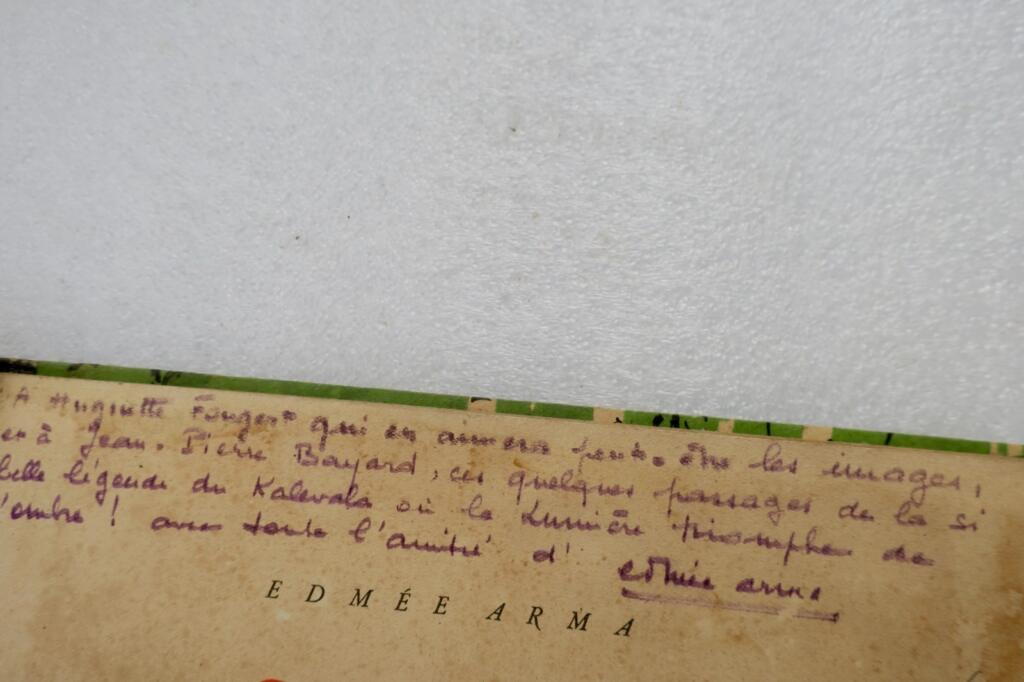 A Huguette Fougère qui en aimera peut-être les images,
et à Jean-Pierre Bayard, ces quelques passages de la si
belle légende du Kalevala où la Lumière triomphe de
l'ombre ! avec toute l'amitié d' edmée arma
EDMÉE ARMA